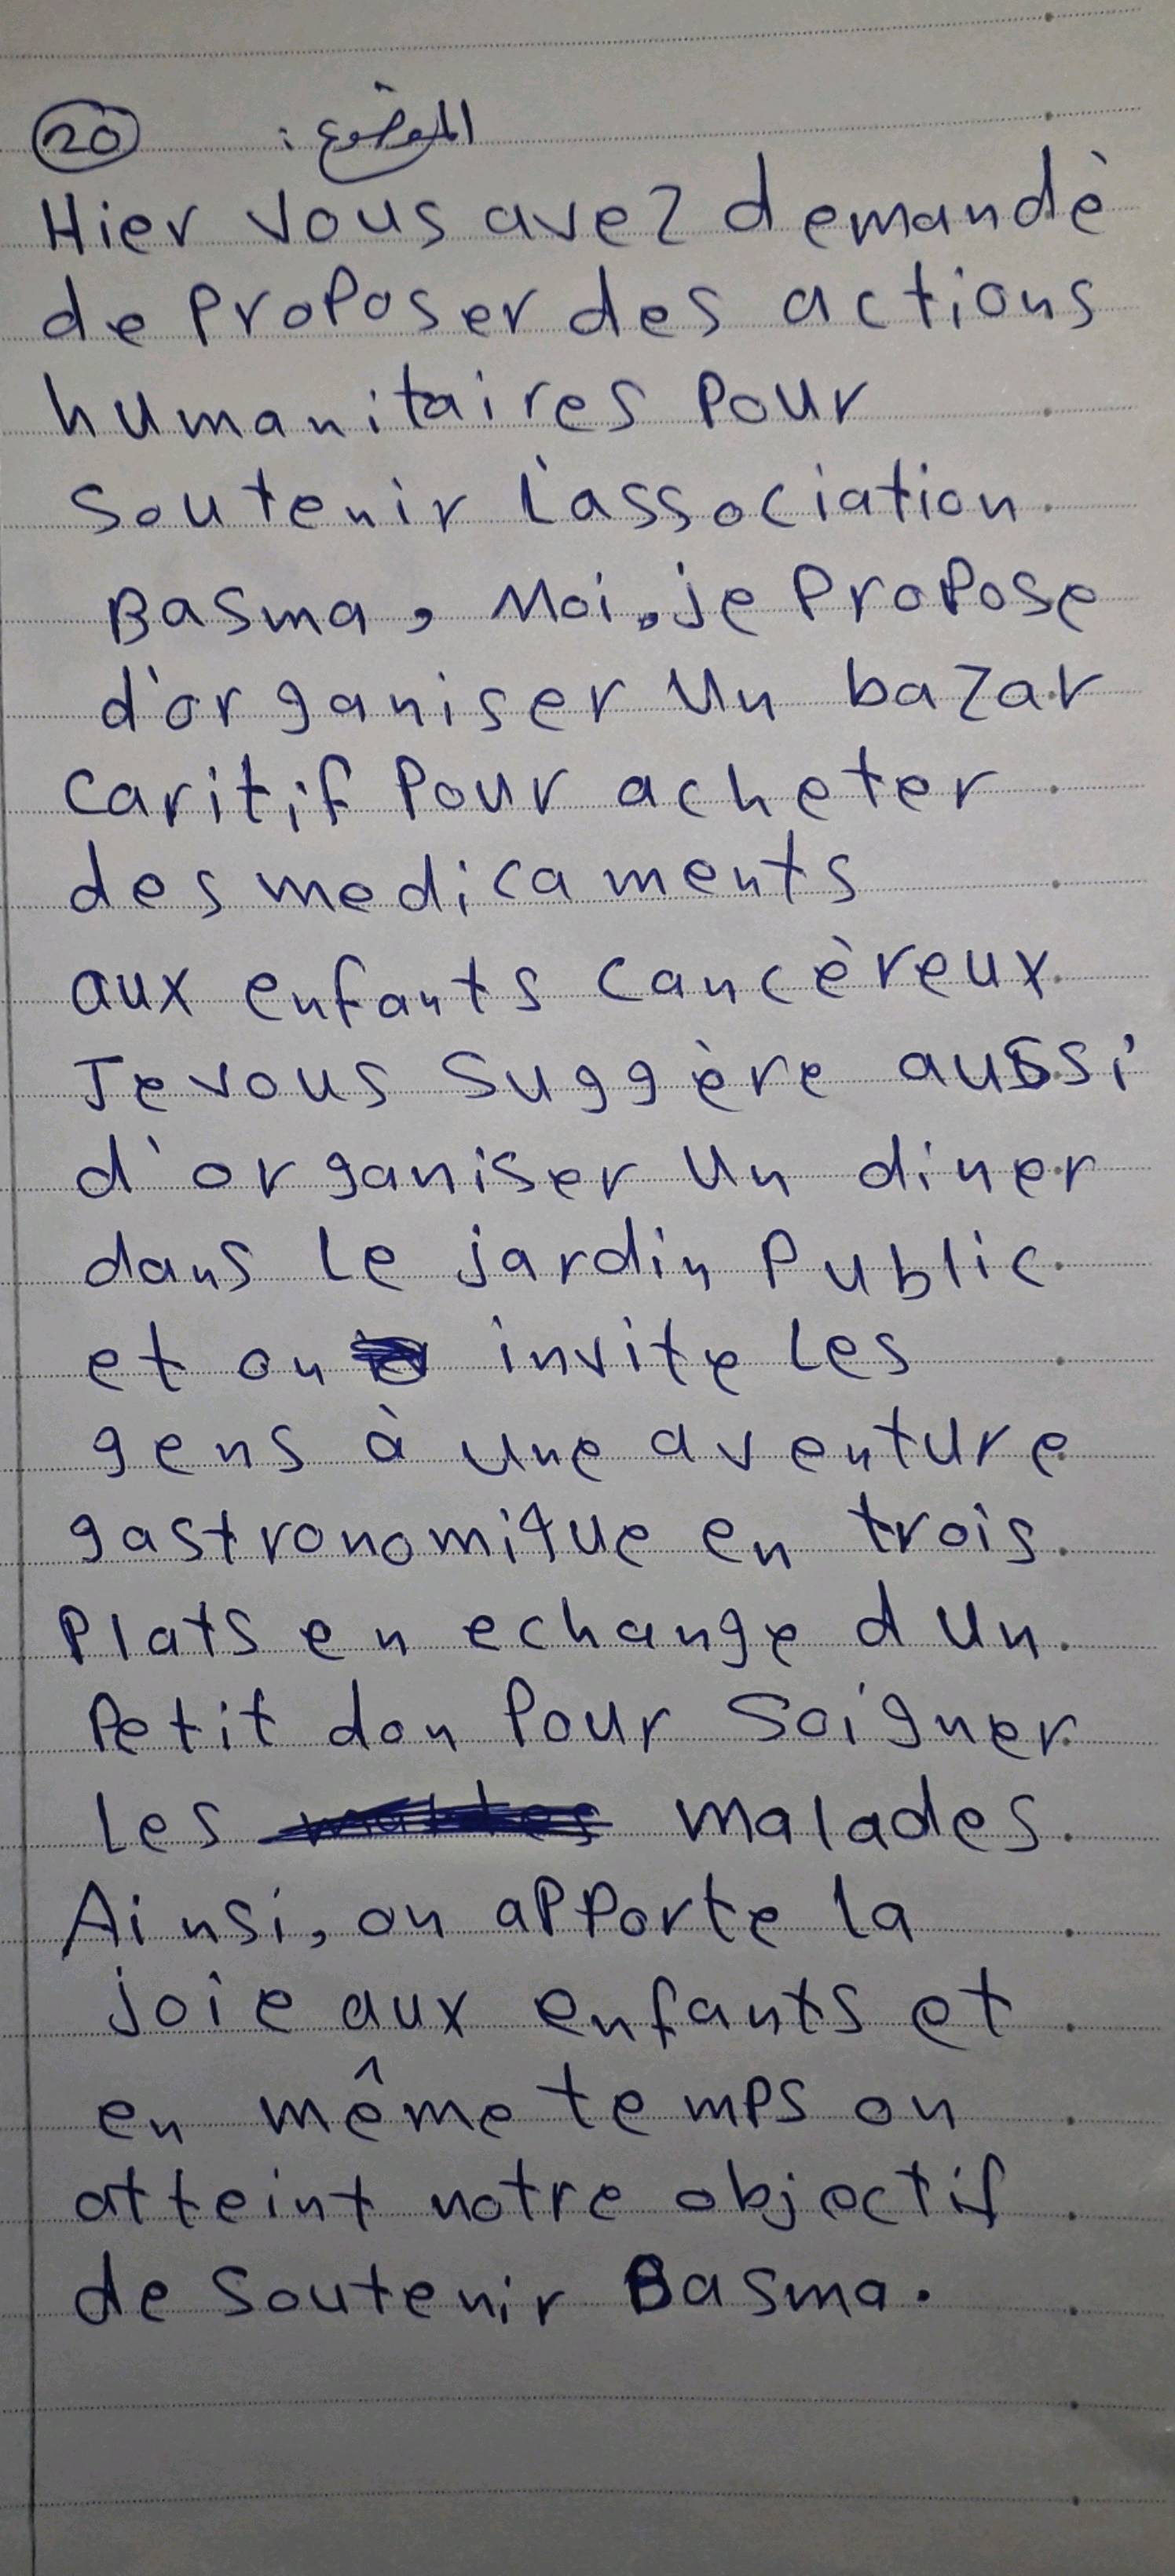 20 الموضوع :
Hier vous avez demandè
de proposer des actions
humanitaires pour
soutenir l'association
Basma, Moi, je propose
d'organiser un bazar
caritif pour acheter
des medicaments
aux enfants cancèreux
Je vous suggère aussi
d'organiser un diner
dans le jardin public
et on invite les
gens à une aventure
gastronomique en trois
plats en echange d un
petit don pour soigner
les malades.
Ainsi, on apporte la
joie aux enfants et
en même temps on
atteint notre objectif
de soutenir Basma.